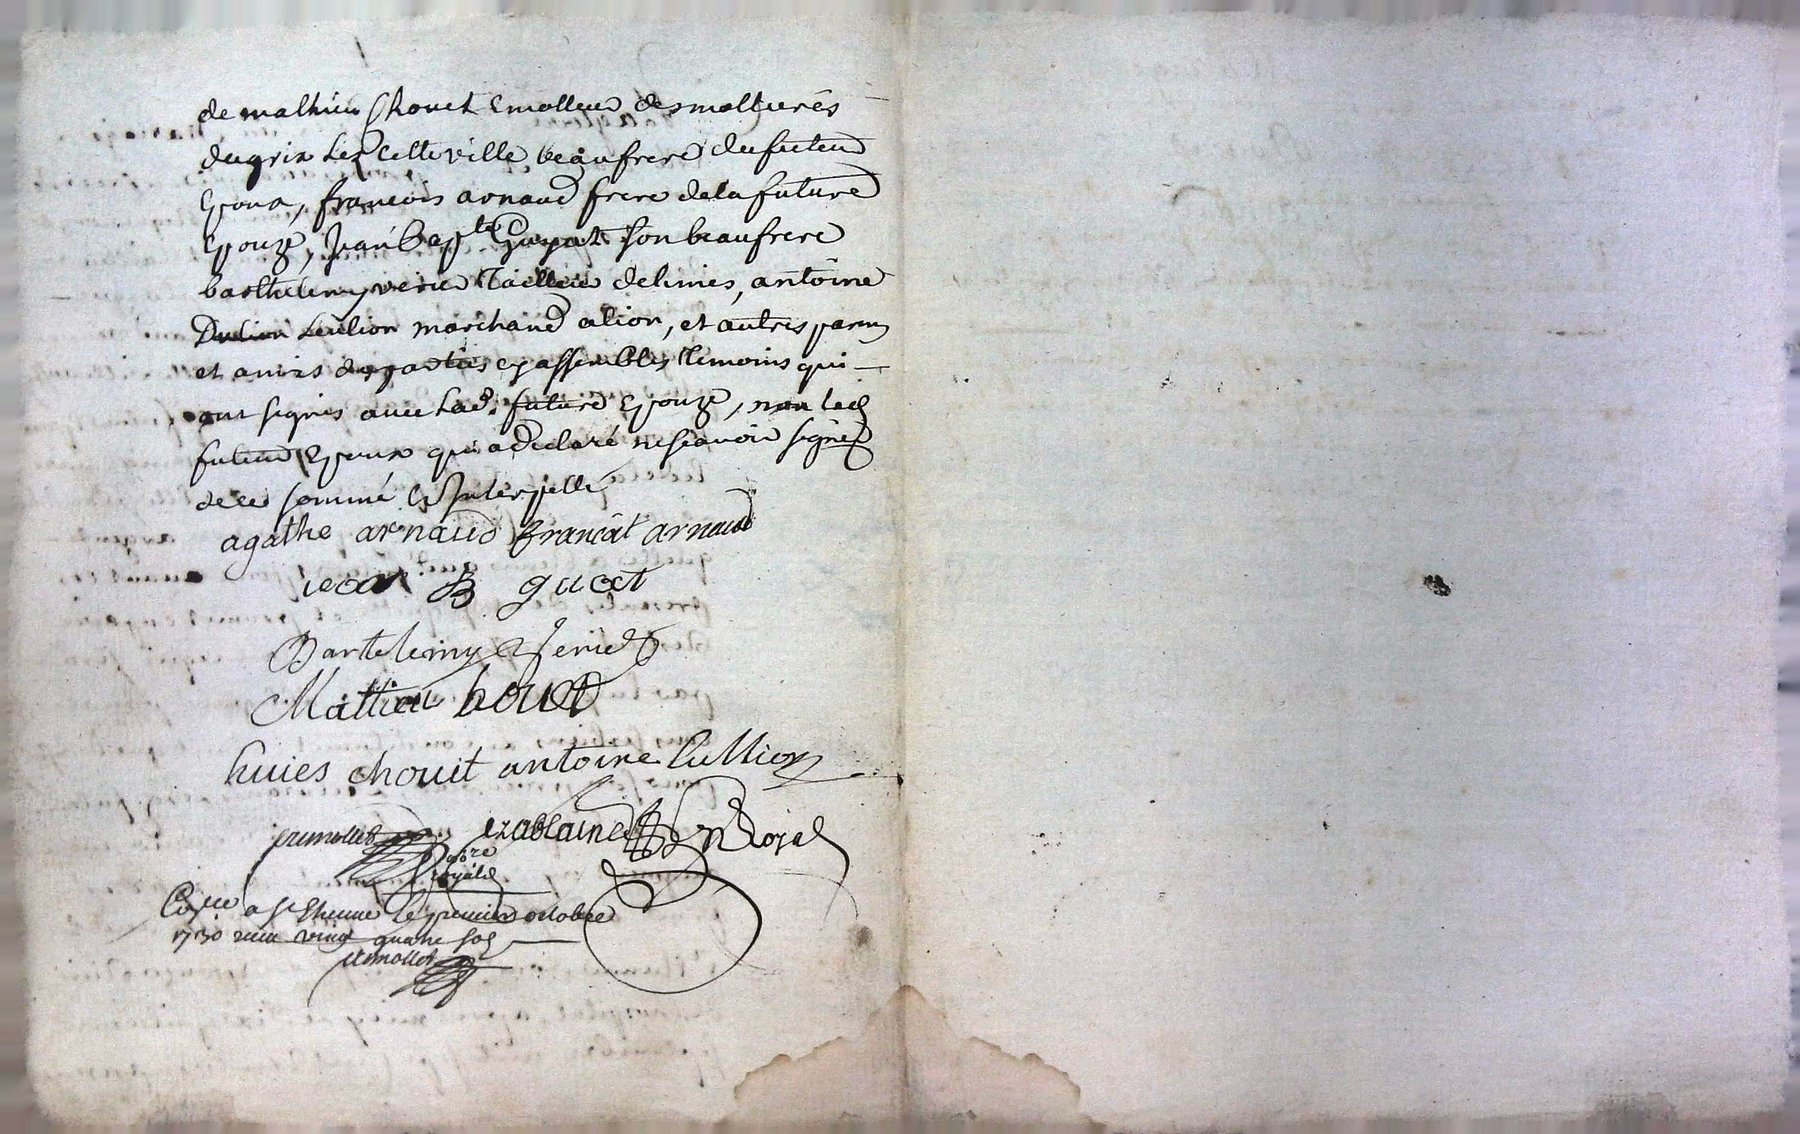 de mathieu Chouet Emolleur des molieres
du grix Lez cette ville beaufrere du futeur
Epoux, francois arnaud frere de la future
Epouze, Jean Bapte Guyot son beaufrere
barthelemy verier Tailleur de limes, antoine
Lullion marchand a lion, et autres parens
et amis des parties assemblés temoins qui
ont signés avec lade. future Epouze, non led
futeur Epoux qui a declaré ne scavoir signer
de ce sommé et Interpellé
agathe arnaud francoit arnaud
jean B guot
Bartelemy verier
Mattieu houet
huies chouit antoine lullion
jremollet ezablaine Nre Royal
nore
royal
Con.lee a St Etienne le premier octobre
1730 receu vingt quatre sols
jremollet